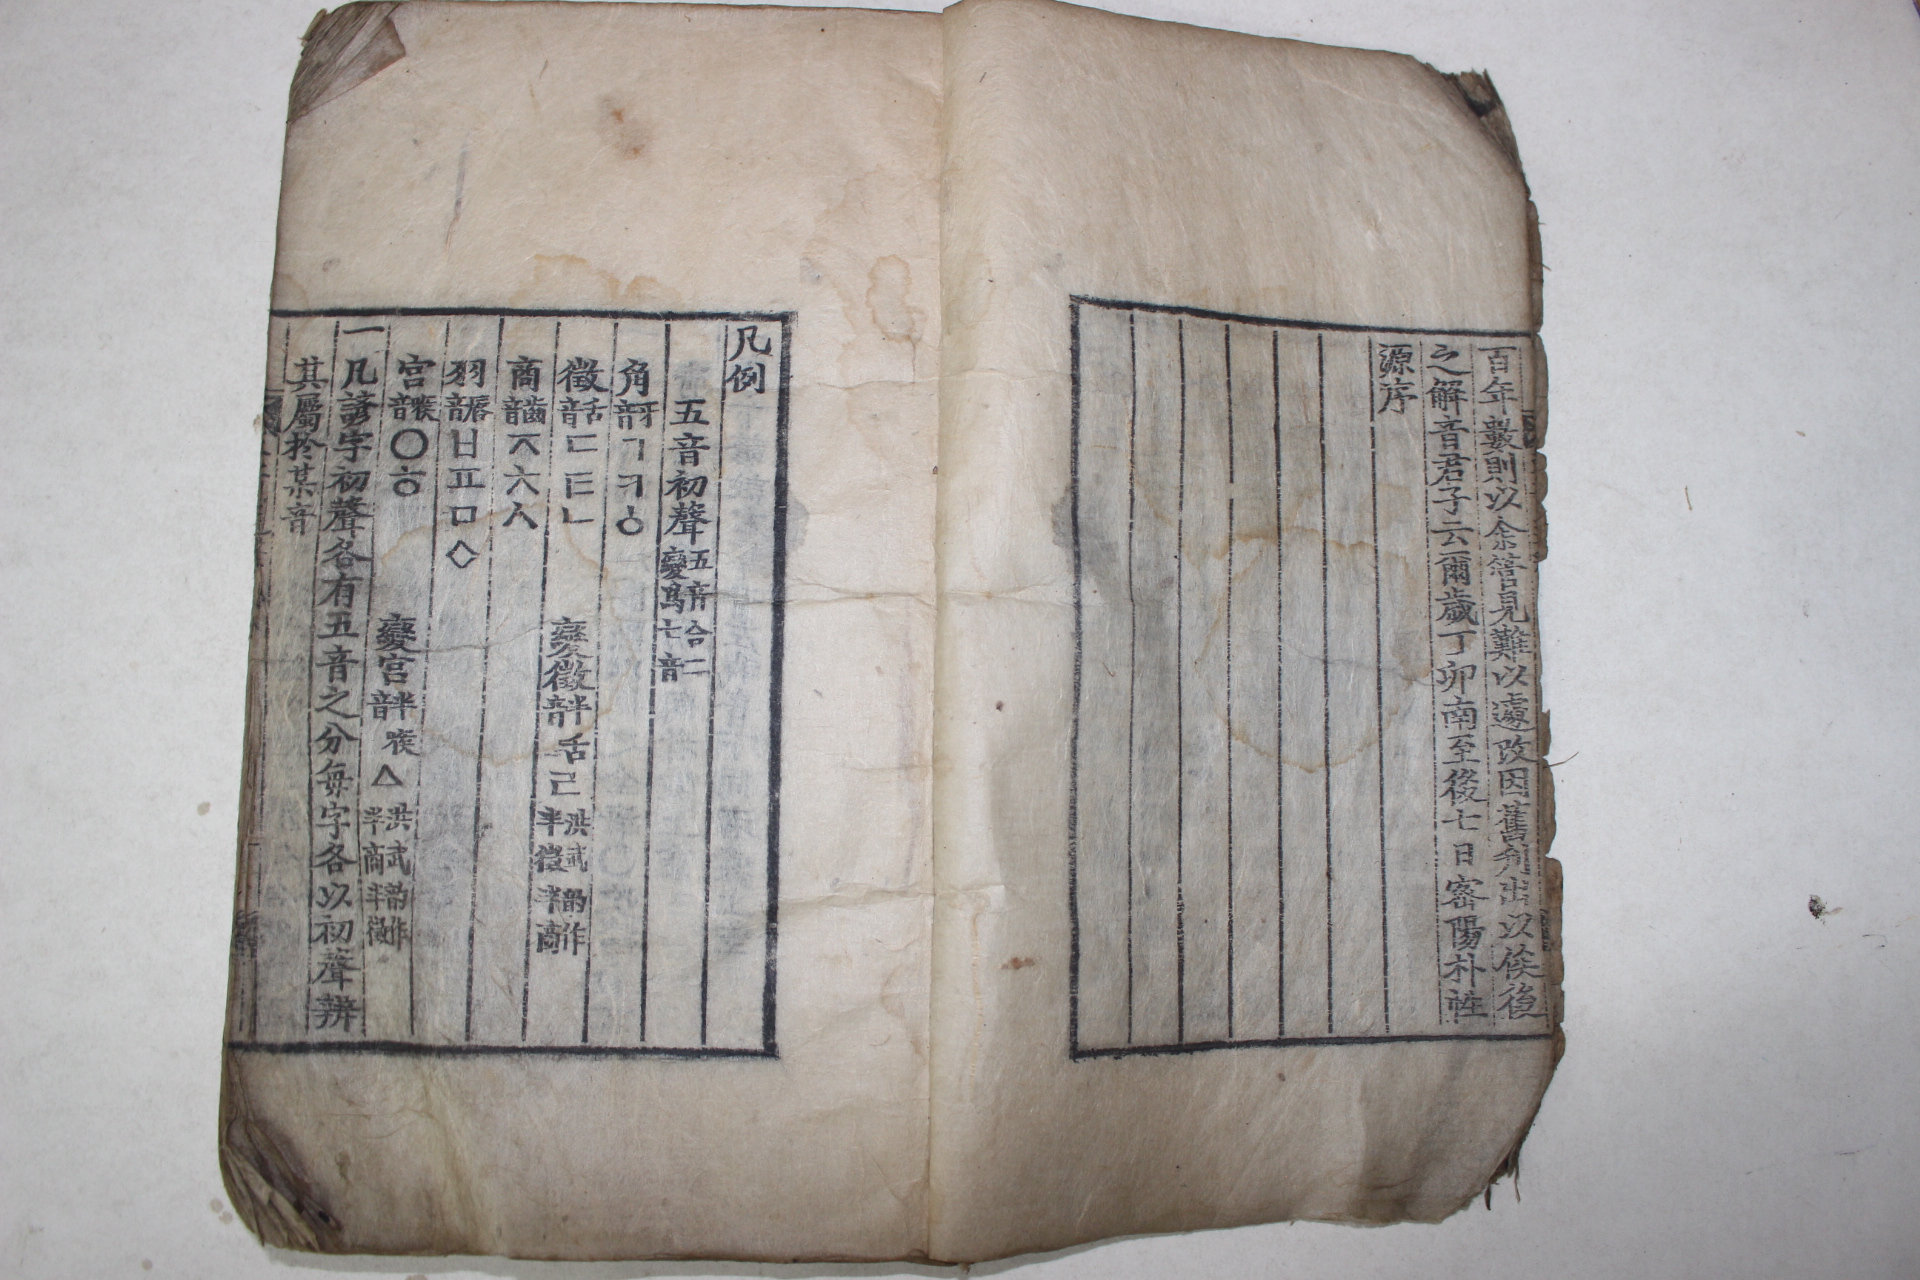 百年數則以余管見難以遽改因舊刊出以俟後
之解音君子云爾歲丁卯南至後七日密陽朴性
源序
凡例
五音初聲 五音合二變爲七音
角 牙音 ㄱㅋㆁ
徵 舌音 ㄷㅌㄴ 變徵 半舌音 ㄹ 洪武韻作半徵半商
商 齒音 ㅈㅊㅅ
羽 脣音 ㅂㅍㅁ◇
宮 喉音 ㅇㅎ 變宮 半喉音 ㅿ 洪武韻作半商半徵
一凡諺字初聲各有五音之分每字各以初聲辨
其屬於某音